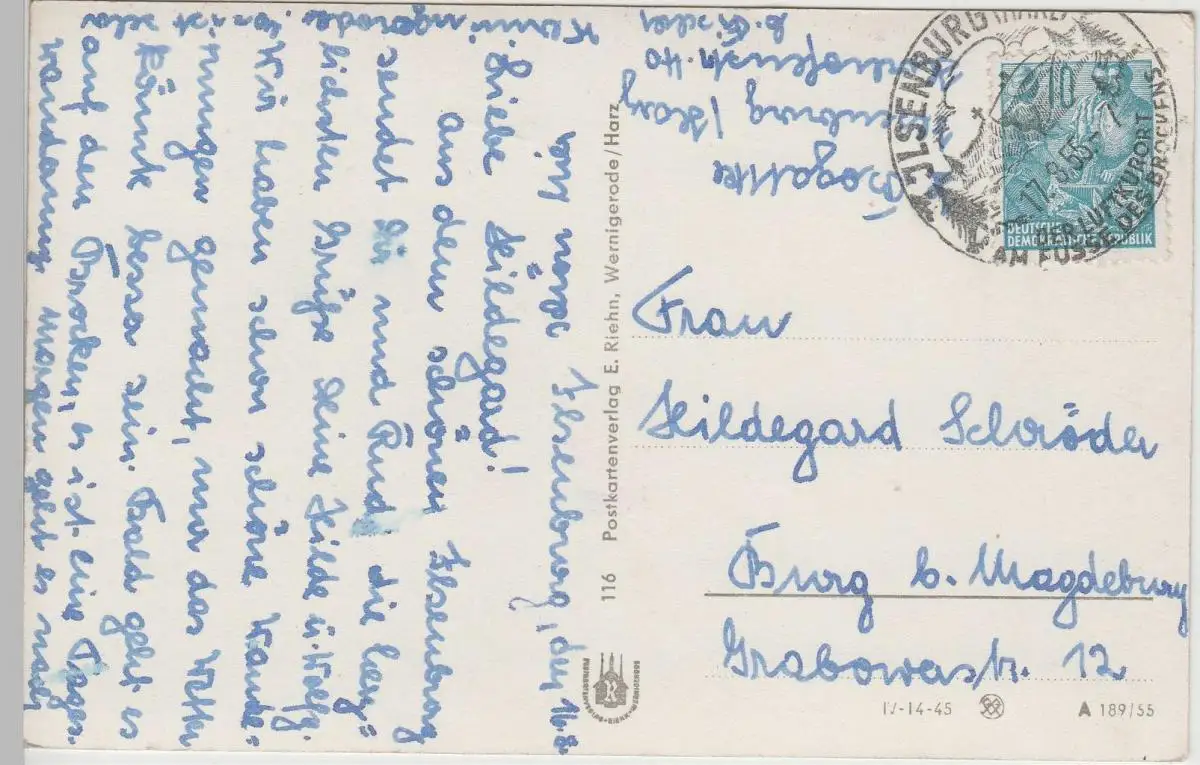 Ilsenburg, den 16.8.
Liebe Hildegard!
Aus dem schönen Ilsenburg
sendet Dir und Rudi die herz-
lichsten Grüße Deine Hilde u. Wolfg.
Wir haben schon schöne Wande-
rungen gemacht, nur das Wetter
könnte besser sein. Bald geht es
auf den Brocken, es ist eine Tages-
wanderung. Morgen geht es nach
Wernigerode
116 Postkartenverlag E. Riehn, Wernigerode/Harz
Ilsenburg/Harz
ILSENBURG (HARZ)
17.8.55
DER LUFTKURORT
AM FUSSE DES BROCKENS
10
DEUTSCHE
DEMOKRATISCHE REPUBLIK
Frau
Hildegard Schröder
Burg b. Magdeburg
Grabowastr. 12
IV-14-45 A 189/55